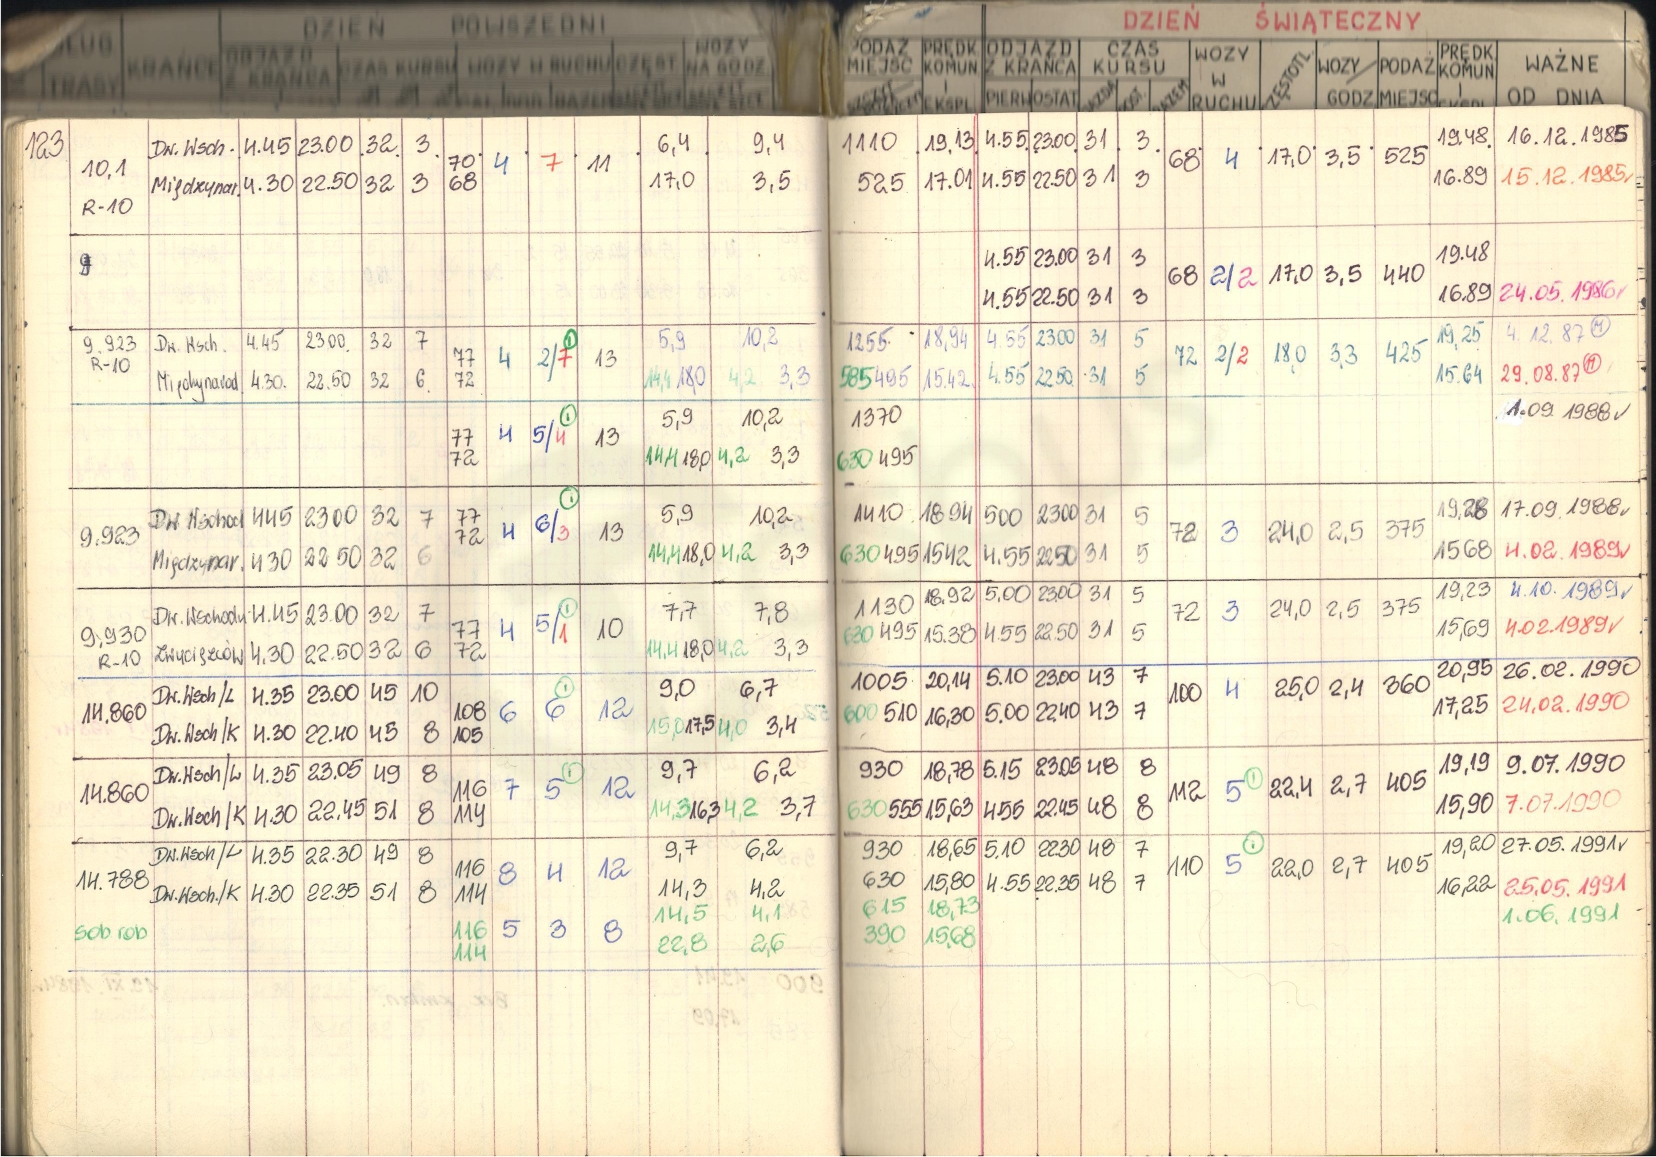 DZIEŃ POWSZEDNI
DZIEŃ ŚWIĄTECZNY
TRASY KRAŃCE ODJAZD Z KRAŃCA CZAS KURSU WOZY W RUCHU CZĘST WOZY NA GODZ.
PODAŻ MIEJSC PRĘDK KOMUN I EKSPL ODJAZD Z KRAŃCA PIERW OSTAT CZAS KURSU WOZY W RUCHU CZĘSTOTL. WOZY GODZ PODAŻ MIEJSC PRĘDK KOMUN I WAŻNE OD DNIA
123
Dw. Wsch. 4.45 23.00 32 3 6,4 9,4 1110 19,13 4.55 23.00 31 3 19.48 16.12.1985
10,1 70 68 4 7 11 68 4 17,0 3,5 525
Międzynar. 4.30 22.50 32 3 17,0 3,5 525 17.01 4.55 22.50 31 3 16.89 15.12.1985
R-10
4.55 23.00 31 3 19.48
68 2/2 17,0 3,5 440
4.55 22.50 31 3 16.89 24.05.1986
9.923 Dw. Wsch. 4.45 23.00 32 7 5,9 10,2 1255 18,94 4.55 23.00 31 5 19,25 4.12.87
R-10 77 72 4 2/7 1 13 72 2/2 18,0 3,3 425
Międzynarod 4.30. 22.50 32 6 14,4 18,0 4,2 3,3 585 495 15.42 4.55 22.50 31 5 15.64 29.08.87
5,9 10,2 1370 1.09 1988
77 72 4 5/4 1 13
14,4 18,0 4,2 3,3 630 495
Dw Wschod 4.45 23.00 32 7 5,9 10,2 1410 18.94 5.00 23.00 31 5 19,28 17.09.1988
9.923 77 72 4 6/3 1 13 72 3 24,0 2,5 375
Międzynar. 4.30 22.50 32 6 14,4 18,0 4,2 3,3 630 495 15.42 4.55 22.50 31 5 15.68 4.02.1989
Dw. Wschodu 4.45 23.00 32 7 7,7 7,8 1130 18.92 5.00 23.00 31 5 19,23 4.10.1989
9.930 77 72 4 5/1 1 10 72 3 24,0 2,5 375
R-10 Zwycięzców 4.30 22.50 32 6 14,4 18,0 4,2 3,3 630 495 15.38 4.55 22.50 31 5 15,69 4.02.1989
Dw. Wsch/L 4.35 23.00 45 10 9,0 6,7 1005 20,14 5.10 23.00 43 7 20,95 26.02.1990
14.860 108 105 6 6 1 12 100 4 25,0 2,4 360
Dw. Wsch/K 4.30 22.40 45 8 15,0 17,5 4,0 3,4 600 510 16,30 5.00 22.40 43 7 17,25 24.02.1990
Dw. Wsch/L 4.35 23.05 49 8 9,7 6,2 930 18,78 5.15 23.05 48 8 19,19 9.07.1990
14.860 116 114 7 5 1 12 112 5 1 22,4 2,7 405
Dw. Wsch/K 4.30 22.45 51 8 14,3 16,3 4,2 3,7 630 555 15,63 4.55 22.45 48 8 15,90 7.07.1990
Dw. Wsch/L 4.35 22.30 49 8 9,7 6,2 930 18,65 5.10 22.30 48 7 19,20 27.05.1991
14.788 116 114 8 4 12 110 5 1 22,0 2,7 405
Dw. Wsch./K 4.30 22.35 51 8 14,3 4,2 630 15,80 4.55 22.35 48 7 16,22 25.05.1991
14,5 4,1 615 18,73 1.06.1991
sob rob 116 114 5 3 8
22,8 2,6 390 15,68